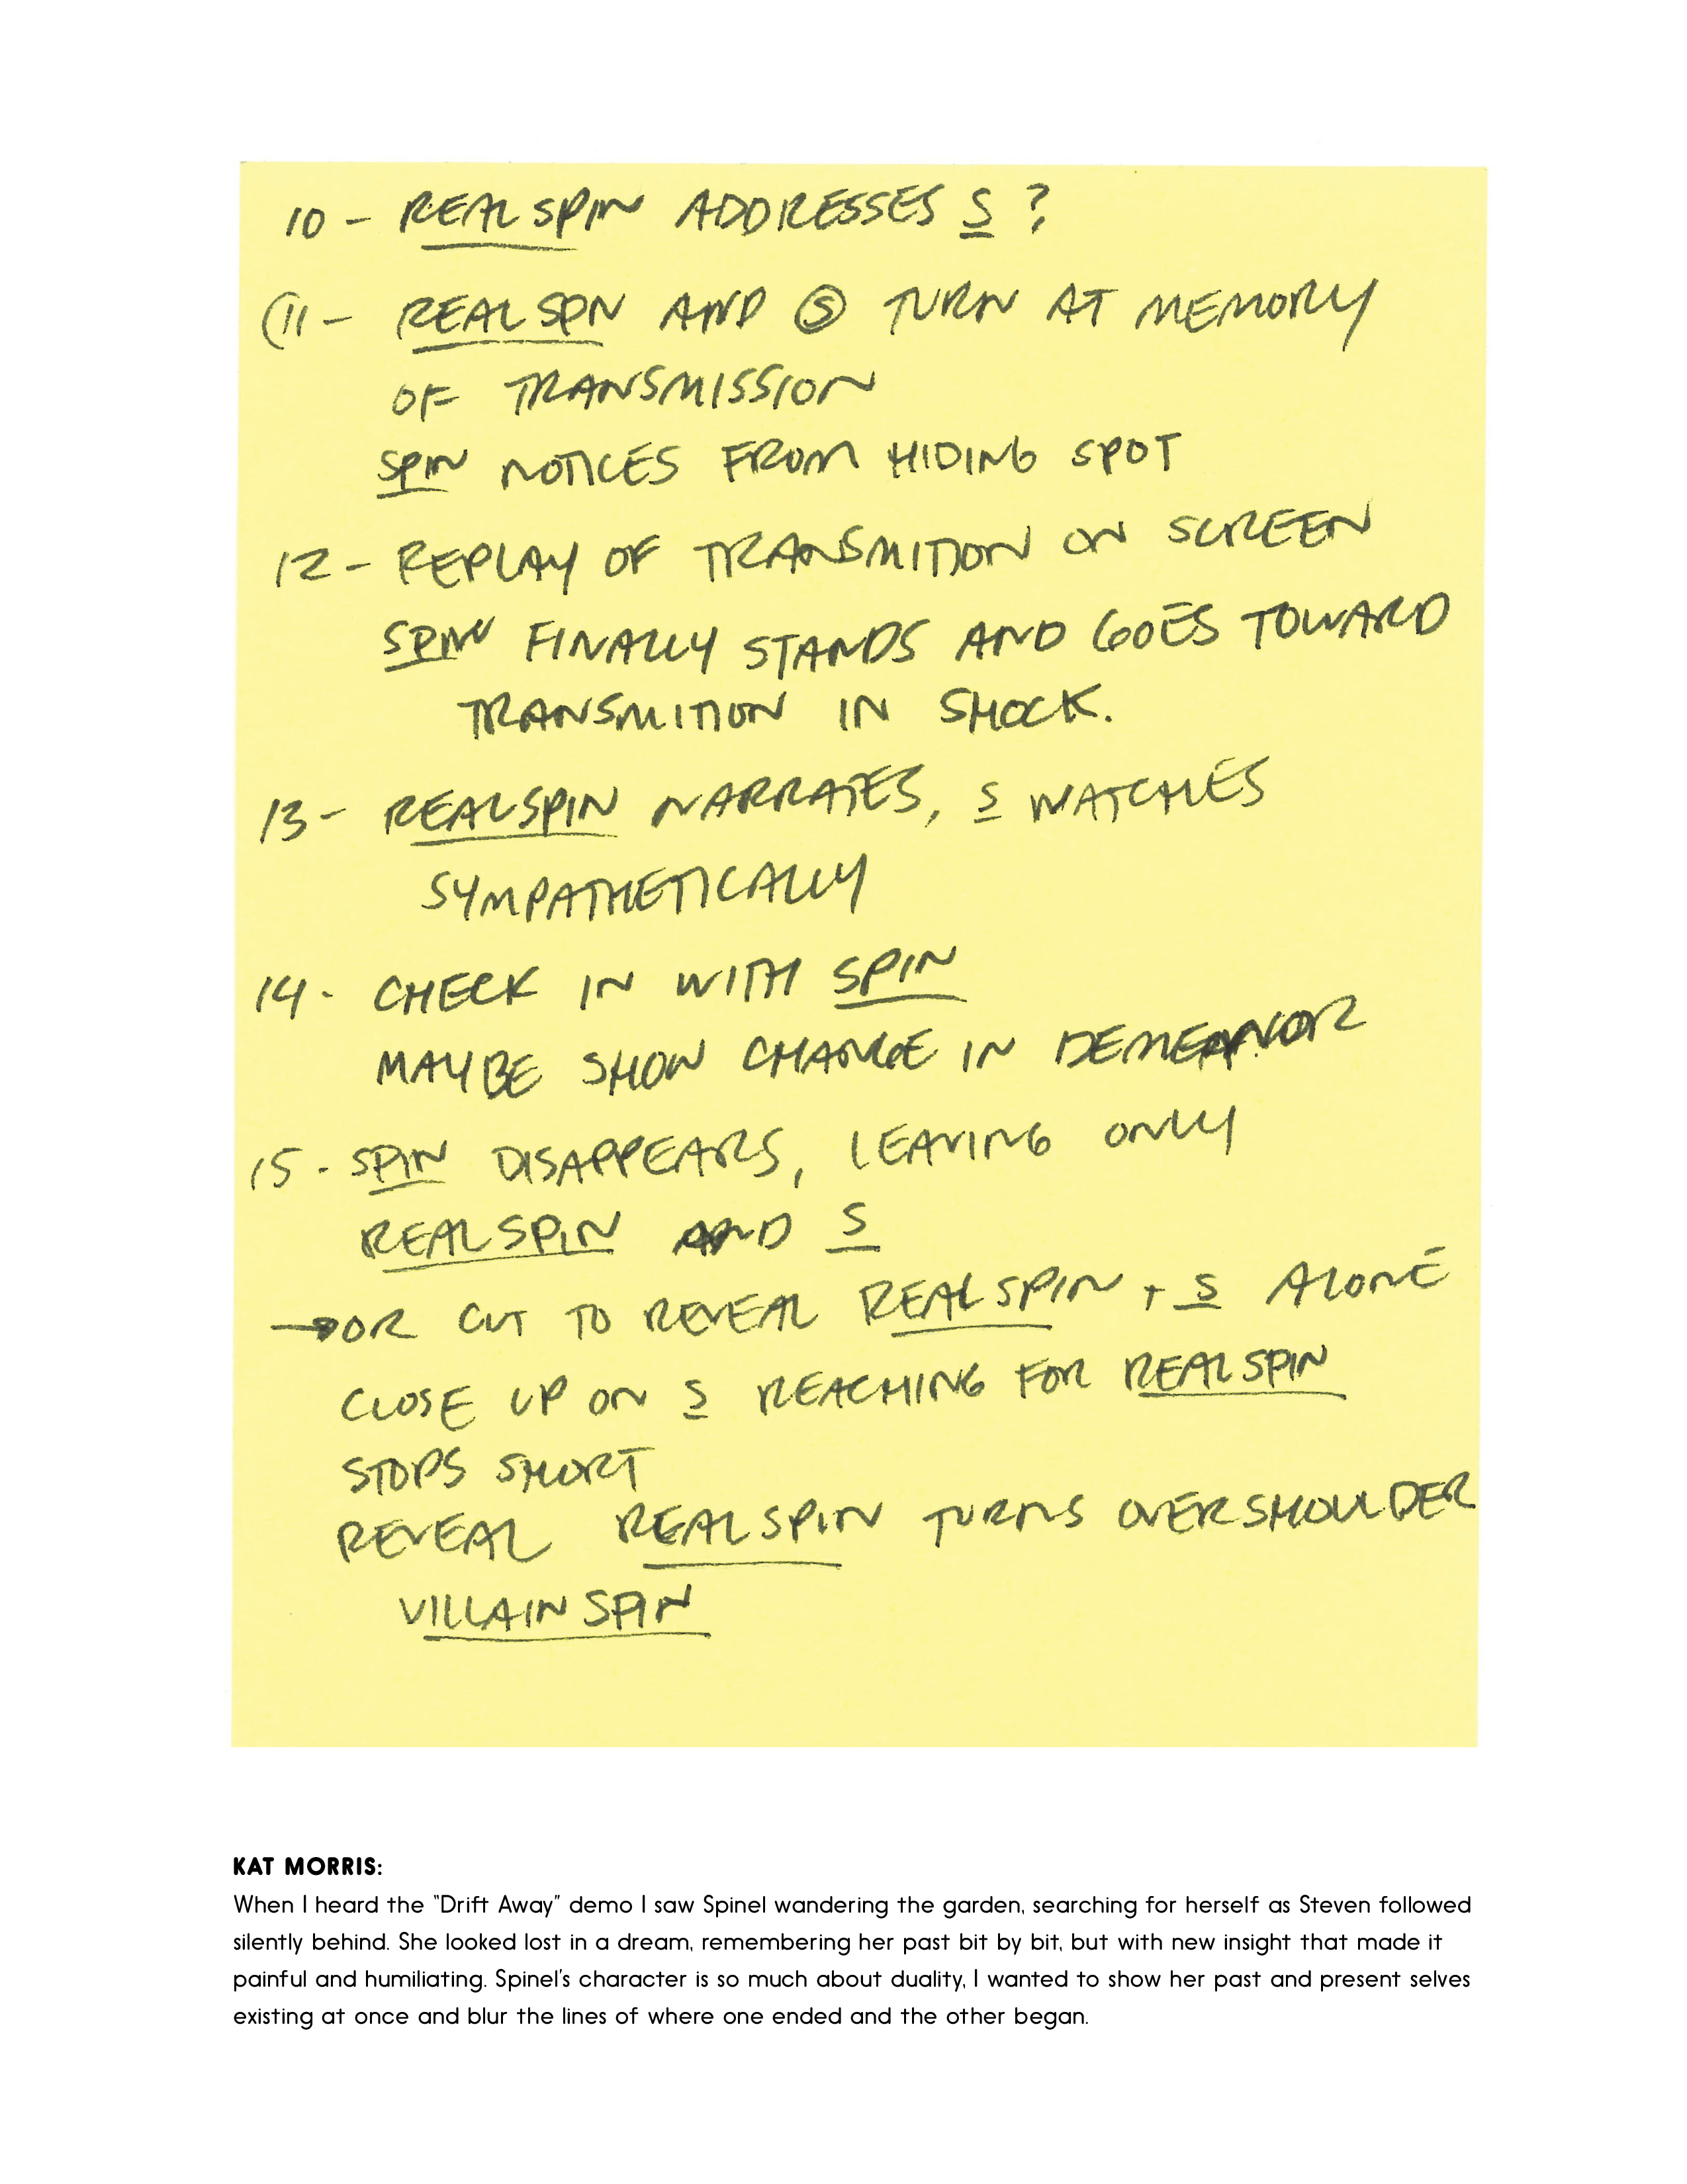 10 - REAL SPIN ADDRESSES S ?
(11 - REAL SPN AND S TURN AT MEMORY
OF TRANSMISSION
SPIN NOTICES FROM HIDING SPOT
12 - REPLAY OF TRANSMITION ON SCREEN
SPIN FINALLY STANDS AND GOES TOWARD
TRANSMITION IN SHOCK.
13 - REAL SPIN NARRATES, S WATCHES
SYMPATHETICALLY
14 - CHECK IN WITH SPIN
MAYBE SHOW CHANGE IN DEMEANOR
15 - SPIN DISAPPEARS, LEAVING ONLY
REAL SPIN AND S
→ OR CUT TO REVEAL REAL SPIN + S ALONE
CLOSE UP ON S REACHING FOR REAL SPIN
STOPS SHORT
REVEAL REAL SPIN TURNS OVER SHOULDER
VILLAIN SPIN
KAT MORRIS:
When I heard the “Drift Away” demo I saw Spinel wandering the garden, searching for herself as Steven followed
silently behind. She looked lost in a dream, remembering her past bit by bit, but with new insight that made it
painful and humiliating. Spinel’s character is so much about duality, I wanted to show her past and present selves
existing at once and blur the lines of where one ended and the other began.